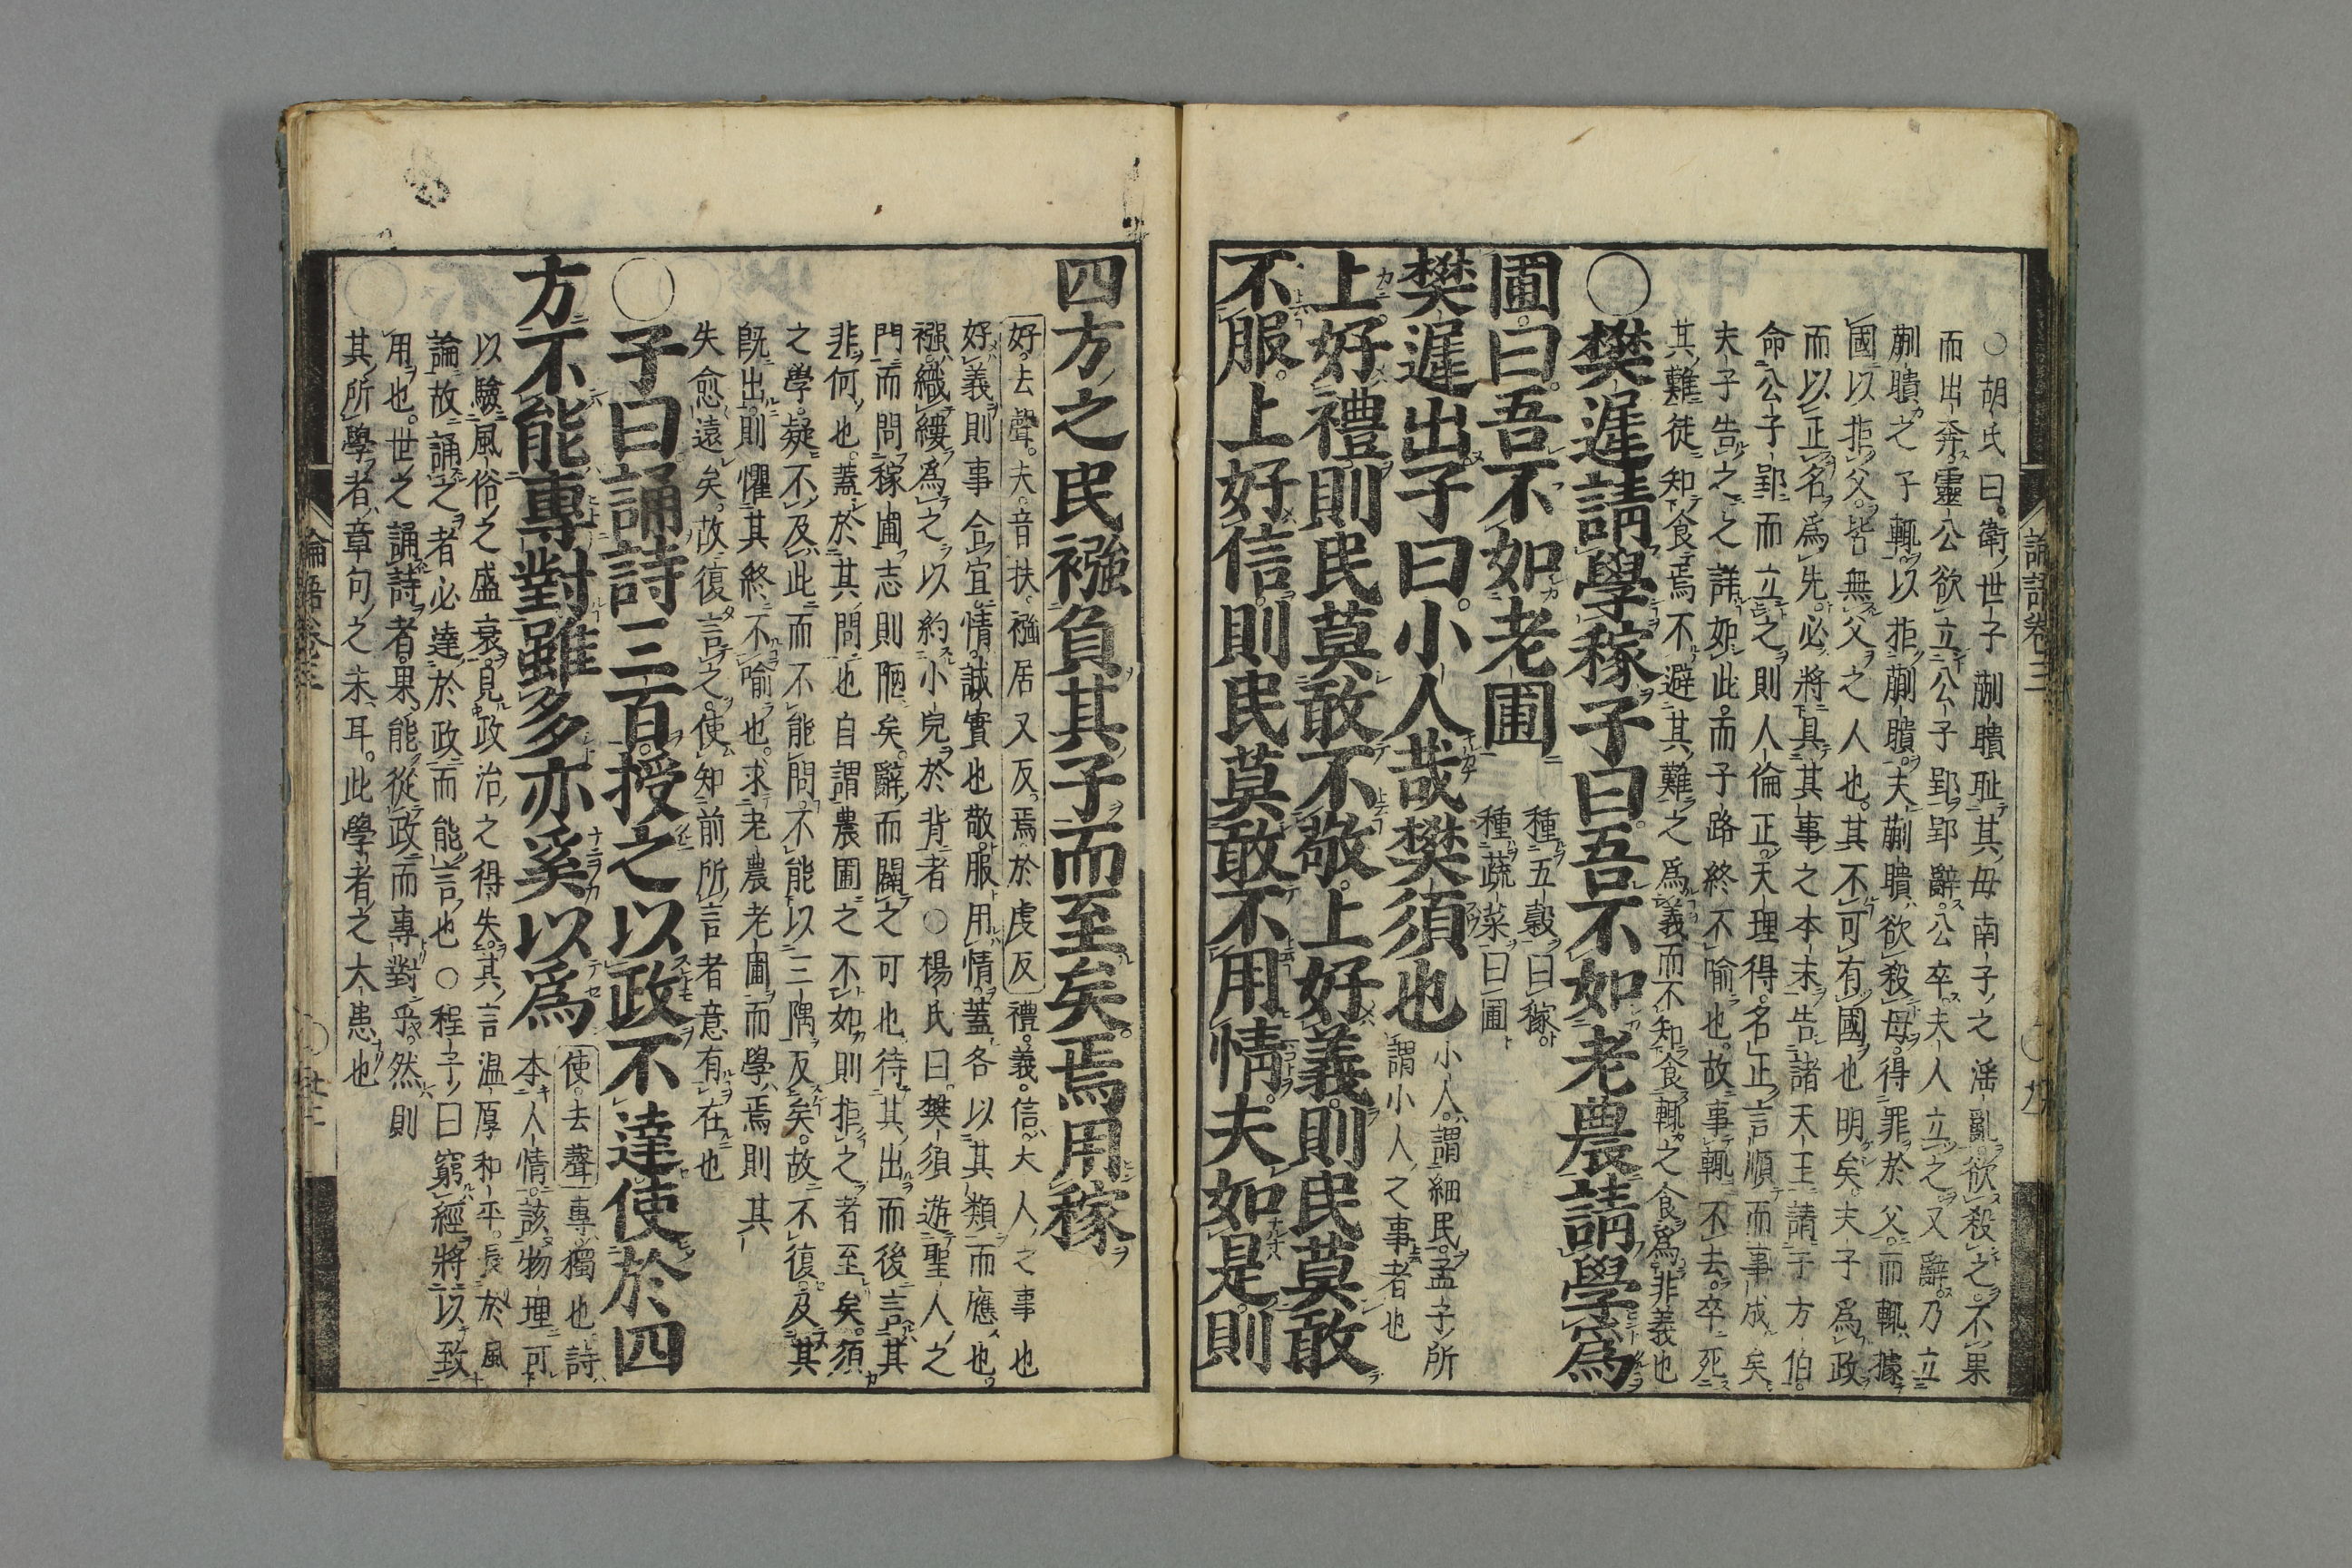 ○胡氏曰衛世子蒯聵耻其母南子之淫亂欲殺之不果
而出奔靈公欲立公子郢郢辭公卒夫人立之又辭乃立
蒯聵之子輒以拒蒯聵夫蒯聵欲殺母得罪於父而輒據
國以拒父皆無父之人也其不可有國也明矣夫子爲政
而以正名爲先必將具其事之本末告諸天王請于方伯
命公子郢而立之則人倫正天理得名正言順而事成矣
夫子告之之詳如此而子路終不喻也故事輒不去卒死
其難徒知食焉不避其難之爲義而不知食輒之食爲非義也
○樊遲請學稼子曰吾不如老農請學爲
圃曰吾不如老圃
種五穀曰稼
種蔬菜曰圃
樊遲出子曰小人哉樊須也
小人謂細民孟子所
謂小人之事者也
上好禮則民莫敢不敬上好義則民莫敢
不服上好信則民莫敢不用情夫如是則
論語卷三
四方之民襁負其子而至矣焉用稼
好去聲夫音扶襁居又反焉於虔反
禮義信大人之事也
好義則事合宜情誠實也敬服用情蓋各以其類而應也
襁織縷爲之以約小兒於背者○楊氏曰樊須遊聖人之
門而問稼圃志則陋矣辭而闢之可也待其出而後言其
非何也蓋於其問也自謂農圃之不如則拒之者至矣須
之學疑不及此而不能問不能以三隅反矣故不復及其
既出則懼其終不喻也求老農老圃而學焉則其
失愈遠矣故復言之使知前所言者意有在也
○子曰誦詩三百授之以政不達使於四
方不能專對雖多亦奚以爲
使去聲
專獨也詩
本人情該物理可
以驗風俗之盛衰見政治之得失其言温厚和平長於風
諭故誦之者必達於政而能言也○程子曰窮經將以致
用也世之誦詩者果能從政而專對乎然則
其所學者章句之末耳此學者之大患也
論語卷三